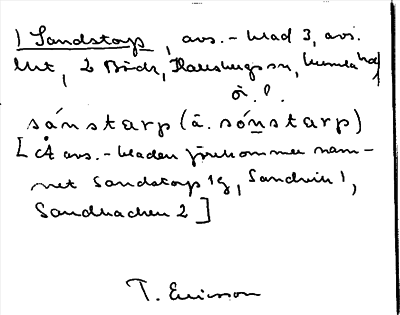 ) Sandstorp, avs.-blad 3, avs.
utt, 2 Bäck, Hallsbergs sn, Kumla hd
ö. l.
sánstarp (ä. sónstarp)
[Å avs.-bladen förekommer nam-
net Sandstorp 1g, Sandvin 1,
Sandbacken 2]
T. Ericsson